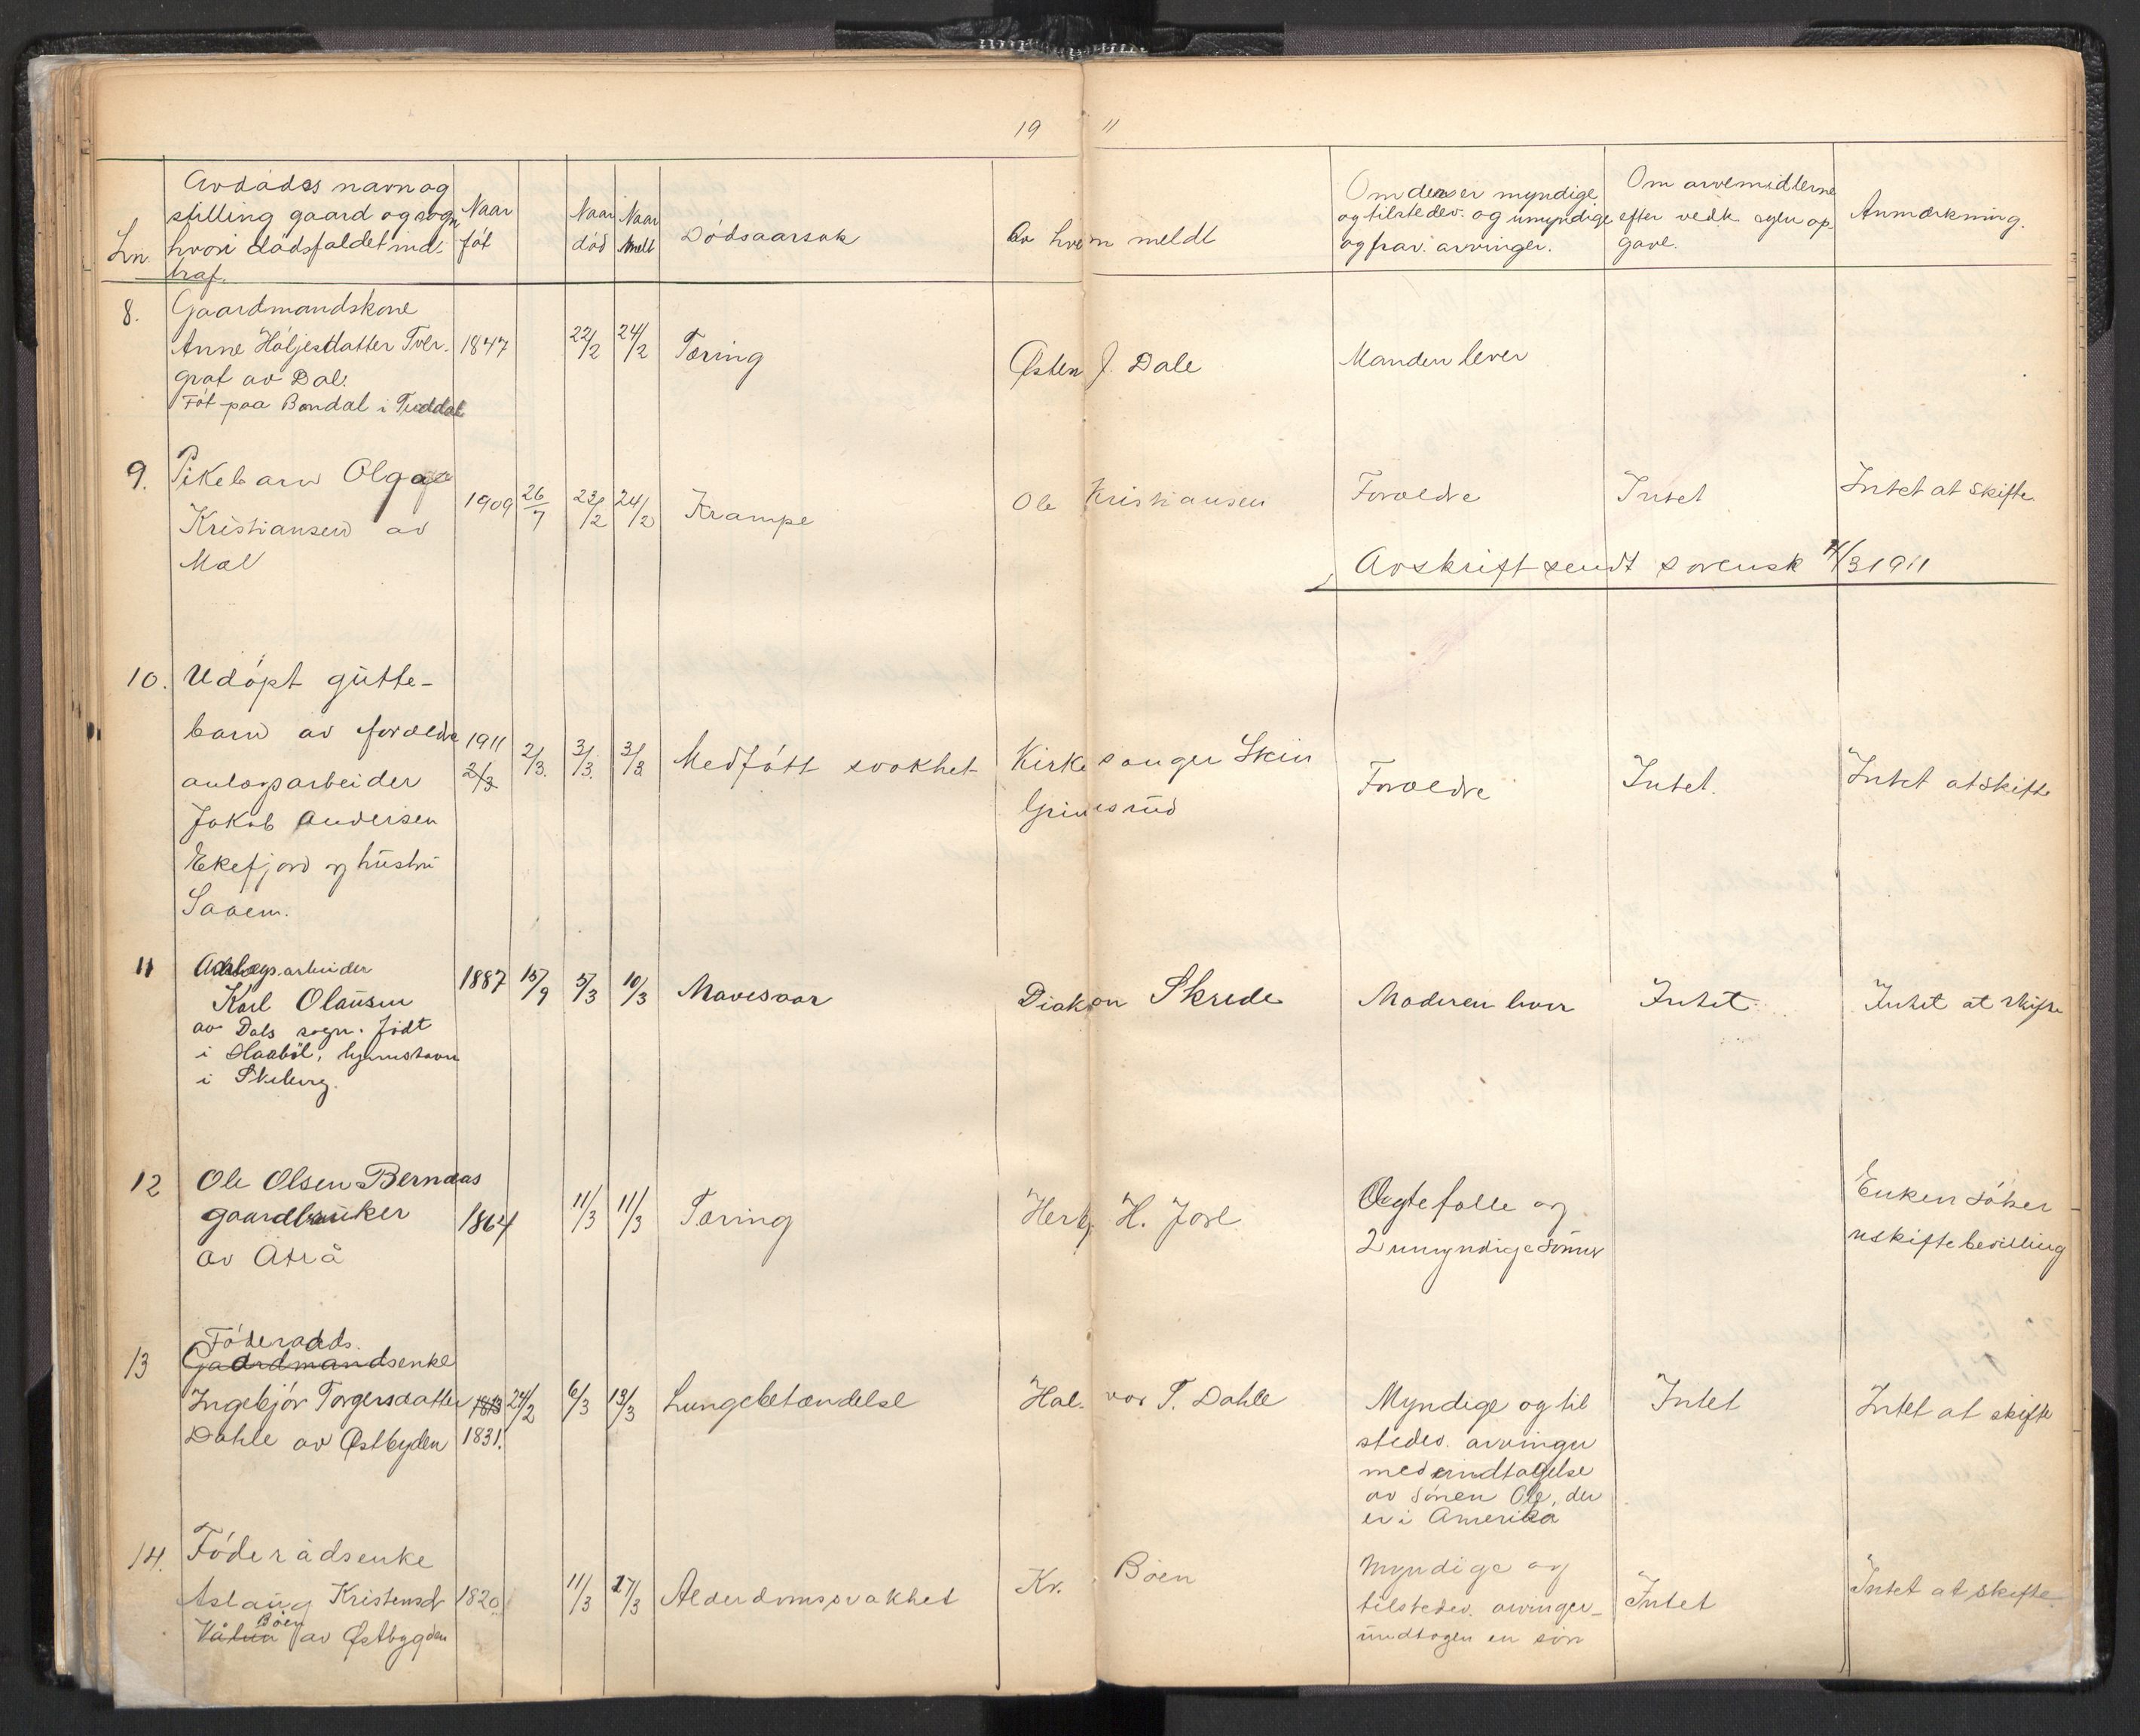 19 11
Ln.
Avdødes navn og
stilling gaard og sogn
hvori dødsfaldet ind-
traf.
Naar
føt
Naar
død
Naar
melt
Dødsaarsak
Av hvem meldt
Om der er myndige
og tilstedev. og umyndige
og frav. arvinger.
Om arvemidlerne
efter vedk. sgen op
gave.
Anmerkning.
8. Gaardmandskone
Anne Høljesdatter Tver- 1847 22/2 24/2 Tæring Østen J. Dale Manden lever
grot av Dal.
Føt paa Bondal i Tuddal
9. Pikebarn Olga
Kristiansen av 1909 26/7 23/2 24/2 Krampe Ole Kristiansen Forældre Intet Intet at skifte
Mæl
Avskrift sendt sorensk 4/3 1911
10. Udøpt gutte-
barn av forældre 1911 2/3 2/3. 3/3. 3/3 Medføtt svakhet Kirkesanger Skin
anlægsarbeider Grimsrud Forældre Intet. Intet at skifte
Jakob Andersen
Ekefjord og hustru
Saaem.
11 Anlægsarbeider
Karl Olausen 1887 15/9 5/3 10/3 Mavesaar Diakon Skrede Moderen lever Intet Intet at skifte
av Dals sogn. Født
i Haabøl, hjemstavn
i Skeberg.
12 Ole Olsen Bernaas
gaardbruker 1864 11/3 11/3 Tæring Herbj. H. Jore Ægtefolle og Enken søker
av Atrå 2 umyndige sønner uskiftebevilling
13 Føderaads.
Gaardmandsenke
Ingebjør Torgersdatter 1813 24/2 6/3 13/3 Lungebetændelse Halvor T. Dahle Myndige og til Intet Intet at skifte
Dahle av Østbyden 1831. stedev. arvinger
med undtagelse
av sønen Ole, der
er i Amerika
14. Føderådsenke
Aslaug Kristensd 1820 11/3 17/3 Alderdomssvakhet Kr. Bøen Myndige og Intet Intet at skifte.
Bøen
av Østbygden tilstedev. arvinger-
undtagen en søn